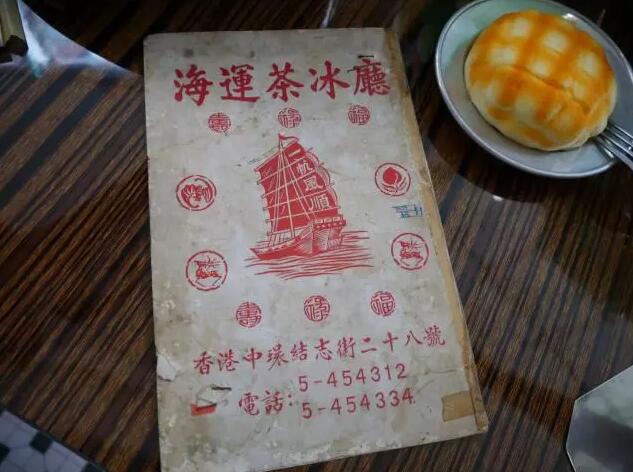 海運茶冰廳
壽 祿 福
一帆風順
壽 祿 福
香港中環結志街二十八號
電話：5-454312
5-454334